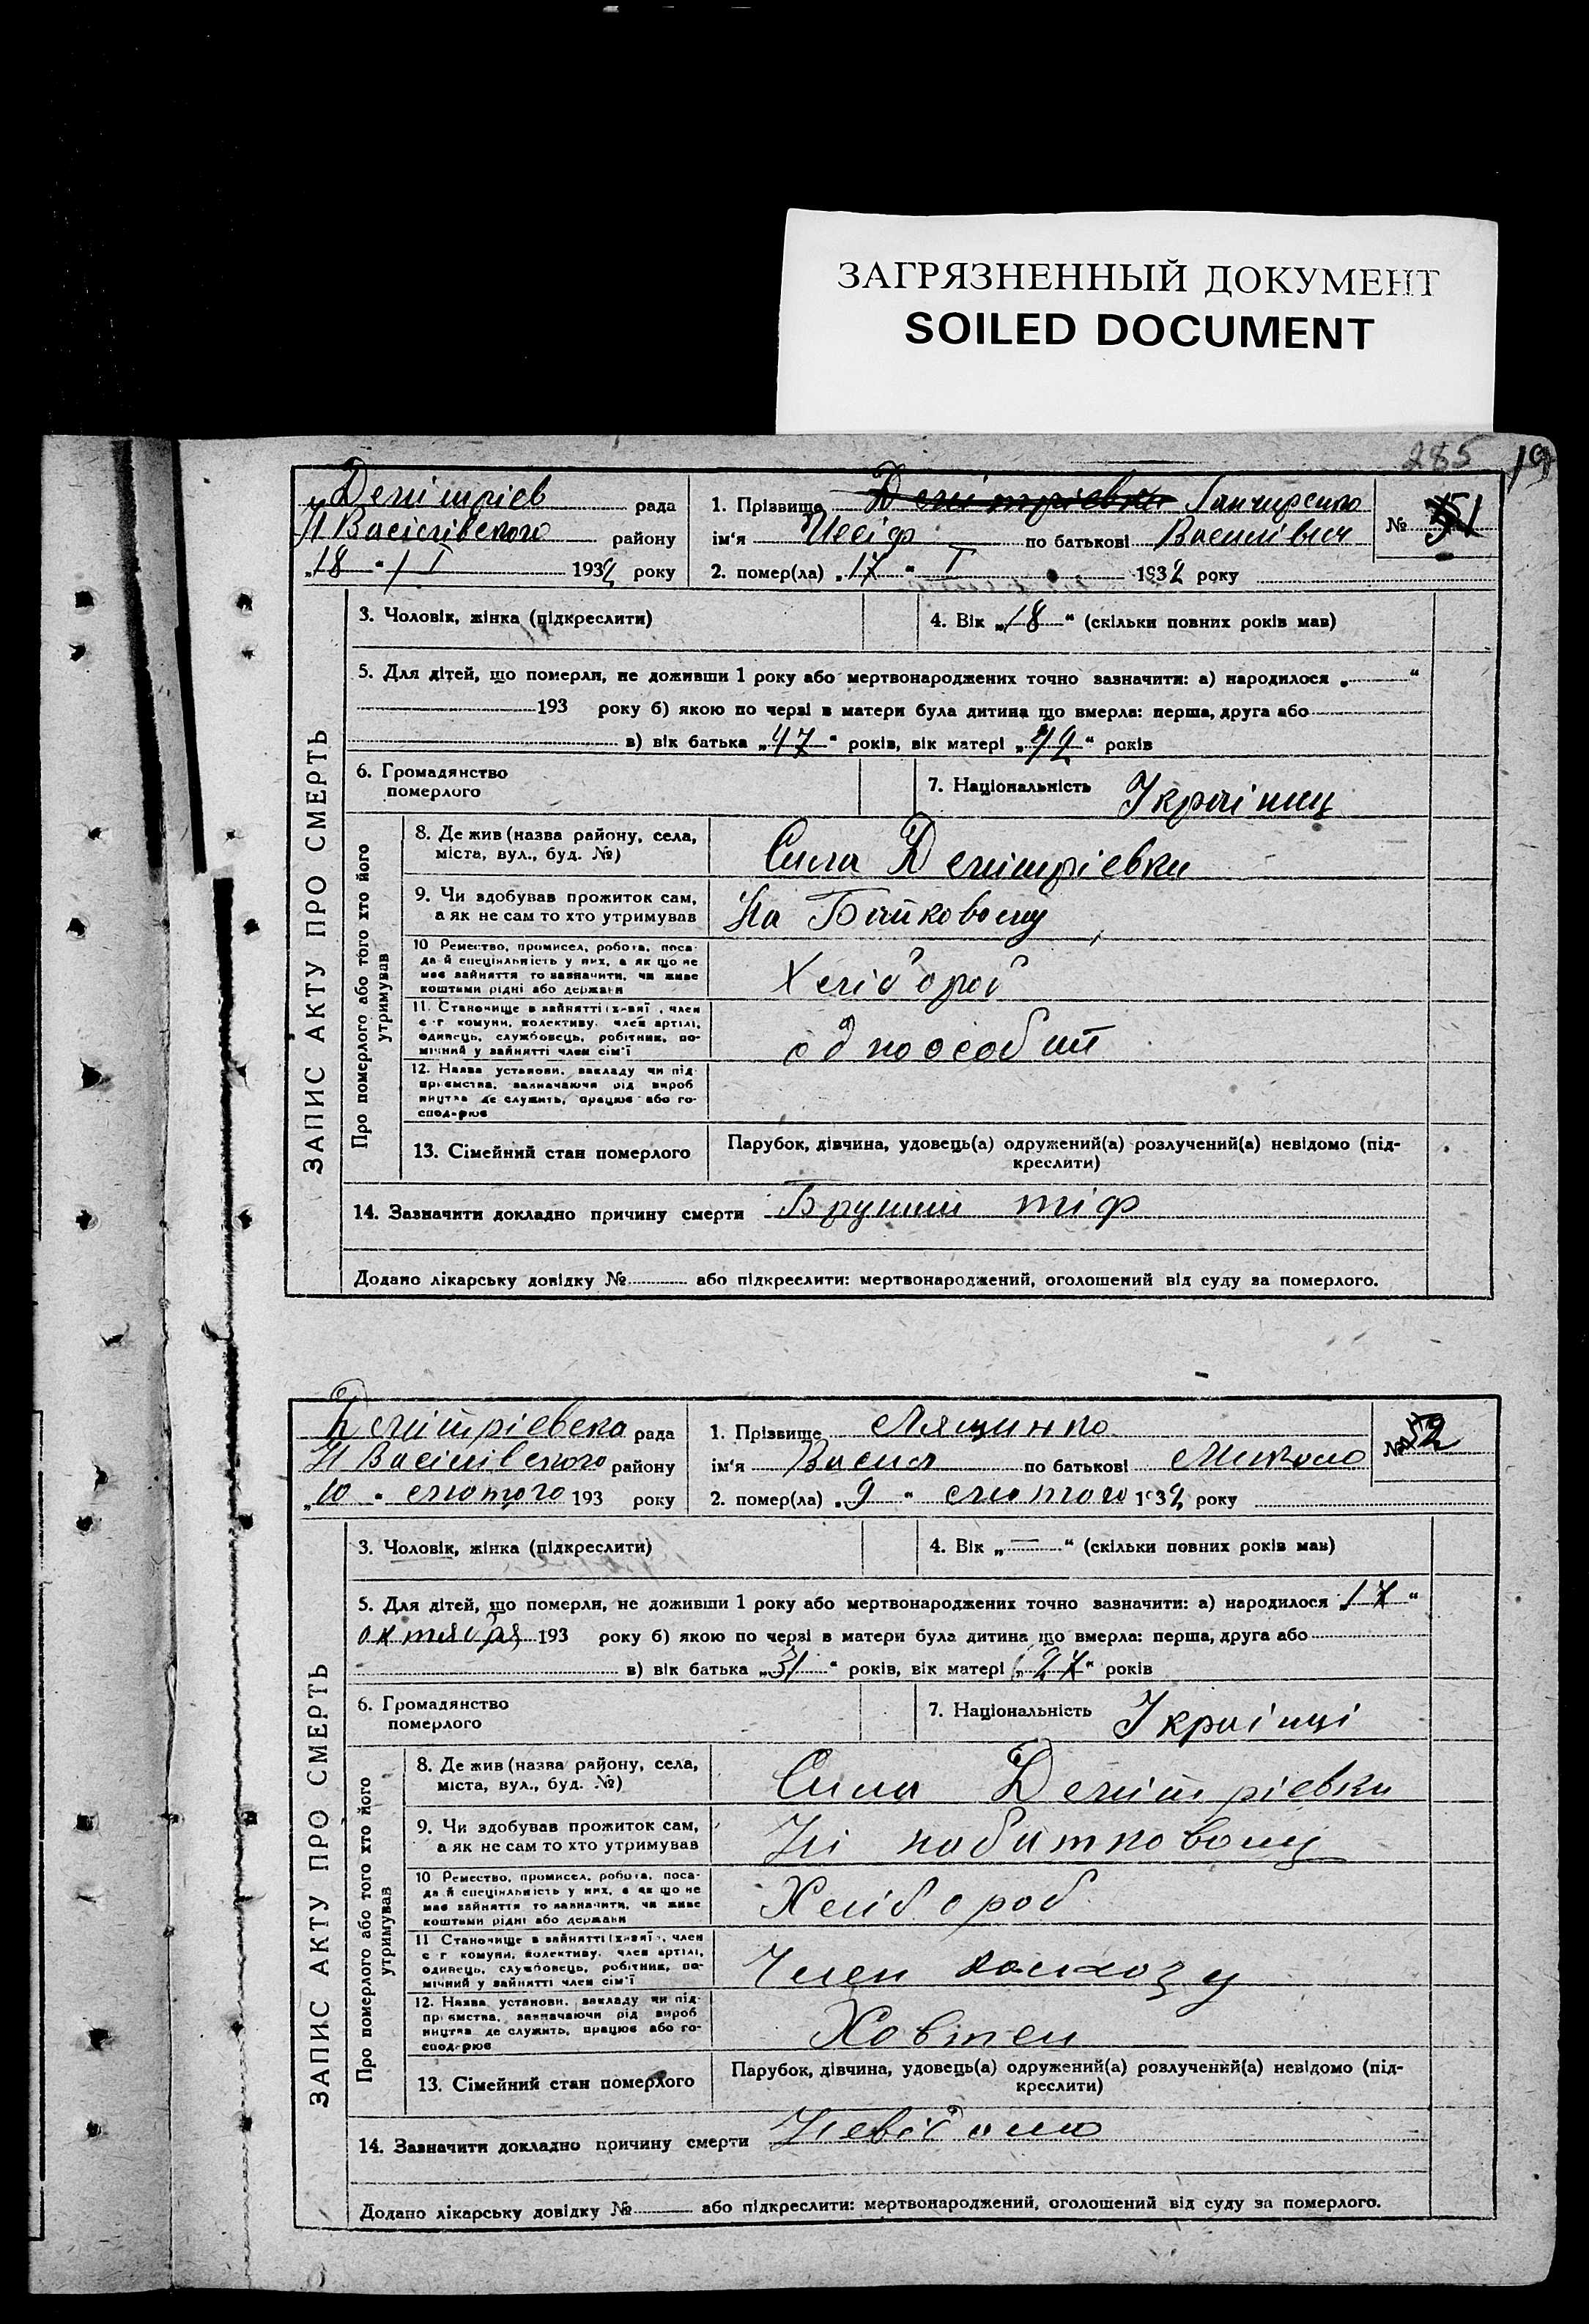 ЗАГРЯЗНЕННЫЙ ДОКУМЕНТ
SOILED DOCUMENT
285 19
ЗАПИС АКТУ ПРО СМЕРТЬ
рада
району
„18 “ І 1932 року
1. Прізвище Ганчиренко
№ 51
ім‘я Иосіф по батькові Василівич
2. помер(ла) „17 “ І 1932 року
3. Чоловік, жінка (підкреслити)
4. Вік „18“ (скільки повних років мав)
5. Для дітей, що померли, не доживши 1 року або мертвонароджених точно зазначити: а) народилося „ “
193 року б) якою по черзі в матери була дитина що вмерла: перша, друга або
в) вік батька „47“ років, вік матері „42“ років
6. Громадянство
померлого
7. Національність Украінец
Про померлого або того хто його
утримував
8. Де жив (назва району, села,
міста, вул., буд. №)
Села Демітріевки
9. Чи здобував прожиток сам,
а як не сам то хто утримував
На Батьковому
10 Ремество, промисел, робота, поса-
да й спеціяльність у них, а як що не
має зайняття то зазначити, чи живе
коштами рідні або держави
Хлібороб
11. Становище в зайнятті (х-зяї , член
с г комуни, колективу, член артілі,
одинець, службовець, робітник, по-
мічний у зайнятті член сім'ї
одноособит
12. Назва установи, закладу чи під-
приємства, зазначаючи рід вироб
ництва де служить, працює або го-
сподарює
13. Сімейний стан померлого
Парубок, дівчина, удовець(а) одружений(а) розлучений(а) невідомо (під-
креслити)
14. Зазначити докладно причину смерти Брушний тіф
Додано лікарську довідку № або підкреслити: мертвонароджений, оголошений від суду за померлого.
ЗАПИС АКТУ ПРО СМЕРТЬ
Демітріевска рада
району
„10 “ лютого 193 року
1. Прізвище Лященко
№ 52
ім‘я Васил по батькові Миколо
2. помер(ла) „9 “ лютого 1932 року
3. Чоловік, жінка (підкреслити)
4. Вік „—“ (скільки повних років мав)
5. Для дітей, що померли, не доживши 1 року або мертвонароджених точно зазначити: а) народилося „17“
октября 193 року б) якою по черзі в матери була дитина що вмерла: перша, друга або
в) вік батька „31“ років, вік матері „27“ років
6. Громадянство
померлого
7. Національність Украінці
Про померлого або того хто його
утримував
8. Де жив (назва району, села,
міста, вул., буд. №)
Села Демітріевки
9. Чи здобував прожиток сам,
а як не сам то хто утримував
На набатковому
10 Ремество, промисел, робота, поса-
да й спеціяльність у них, а як що не
має зайняття то зазначити, чи живе
коштами рідні або держави
Хлібороб
11 Становище в зайнятті (х-зяї , член
с г комуни, колективу, член артілі,
одинець, службовець, робітник, по-
мічний у зайнятті член сім'ї
Член колхозу
12. Назва установи, закладу чи під-
приємства, зазначаючи рід вироб
ництва де служить, працює або го-
сподарює
Ховтен
13. Сімейний стан померлого
Парубок, дівчина, удовець(а) одружений(а) розлучений(а) невідомо (під-
креслити)
14. Зазначити докладно причину смерти Невідомо
Додано лікарську довідку № або підкреслити: мертвонароджений, оголошений від суду за померлого.